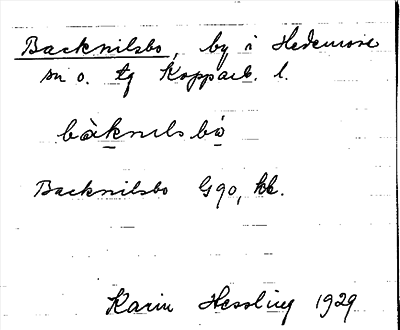 Backnilsbo, by i Hedemora
sn o. tg Kopparb. l.
bàknils bò
Backnilsbo G90, kk.
Karin Hessling 1929